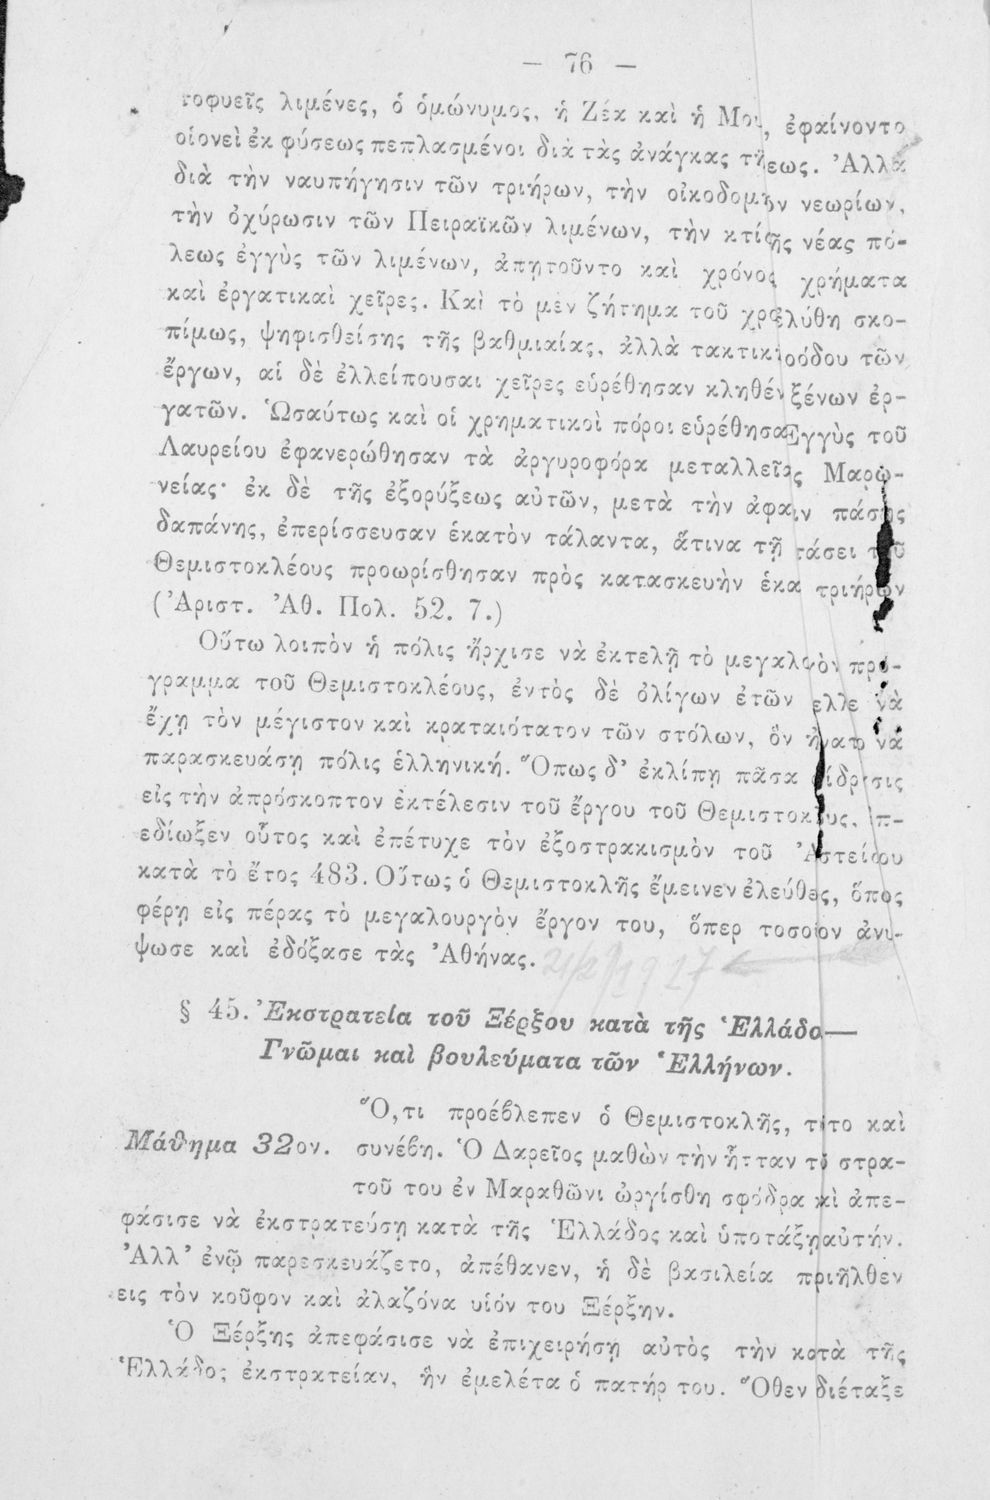 — 76 —
τοφυεῖς λιμένες, ὁ ὁμώνυμος, ἡ Ζέα καὶ ἡ ἐφαίνοντο
οἱονεὶ ἐκ φύσεως πεπλασμένοι διὰ τὰς ἀνάγκας Ἀλλὰ
διὰ τὴν ναυπήγησιν τῶν τριήρων, τὴν νεωρίων,
τὴν ὀχύρωσιν τῶν Πειραϊκῶν λιμένων, τὴν νέας πό-
λεως ἐγγὺς τῶν λιμένων, ἀπητοῦντο καὶ χρόνος χρήματα
καὶ ἐργατικαὶ χεῖρες. Καὶ τὸ μὲν ζήτημα τοῦ σκο-
πίμως, ψηφισθείσης τῆς βαθμιαίας, ἀλλὰ τῶν
ἔργων, αἱ δὲ ἐλλείπουσαι χεῖρες εὑρέθησαν ξένων ἐρ-
γατῶν. Ὡσαύτως καὶ οἱ χρηματικοὶ πόροι τοῦ
Λαυρείου ἐφανερώθησαν τὰ ἀργυροφόρα Μαρω-
νείας· ἐκ δὲ τῆς ἐξορύξεως αὐτῶν, μετὰ τὴν πάσης
δαπάνης, ἐπερίσσευσαν ἑκατὸν τάλαντα, ἅτινα τῇ
Θεμιστοκλέους προωρίσθησαν πρὸς κατασκευὴν τριήρων
(Ἀριστ. Ἀθ. Πολ. 52. 7.)
Οὕτω λοιπὸν ἡ πόλις ἤρχισε νὰ ἐκτελῇ τὸ προ-
γραμμα τοῦ Θεμιστοκλέους, ἐντὸς δὲ ὀλίγων ἐτῶν νὰ
ἔχῃ τὸν μέγιστον καὶ κραταιότατον τῶν στόλων, ὃν νὰ
παρασκευάσῃ πόλις ἑλληνική. Ὅπως δ' ἐκλίπῃ πᾶσα
εἰς τὴν ἀπρόσκοπτον ἐκτέλεσιν τοῦ ἔργου τοῦ
εδίωξεν οὗτος καὶ ἐπέτυχε τὸν ἐξοστρακισμὸν τοῦ
κατὰ τὸ ἔτος 483. Οὕτως ὁ Θεμιστοκλῆς ἔμεινεν ὅπως
φέρῃ εἰς πέρας τὸ μεγαλουργὸν ἔργον του, ὅπερ ἀνύ-
ψωσε καὶ ἐδόξασε τὰς Ἀθήνας.
§ 45. Ἐκστρατεία τοῦ Ξέρξου κατὰ τῆς —
Γνῶμαι καὶ βουλεύματα τῶν Ἑλλήνων.
Ὅ,τι προέβλεπεν ὁ Θεμιστοκλῆς, καὶ
Μάθημα 32ον. συνέβη. Ὁ Δαρεῖος μαθὼν τὴν ἧτταν στρα-
τοῦ του ἐν Μαραθῶνι ὠργίσθη σφόδρα ἀπε-
φάσισε νὰ ἐκστρατεύσῃ κατὰ τῆς Ἑλλάδος καὶ ὑποτάξῃ αὐτήν.
Ἀλλ' ἐνῷ παρεσκευάζετο, ἀπέθανεν, ἡ δὲ βασιλεία
εις τὸν κοῦφον καὶ ἀλαζόνα υἱόν του Ξέρξην.
Ὁ Ξέρξης ἀπεφάσισε νὰ ἐπιχειρήσῃ αὐτὸς τὴν κατὰ τῆς
Ἑλλάδος ἐκστρατείαν, ἣν ἐμελέτα ὁ πατήρ του. Ὅθεν διέταξε